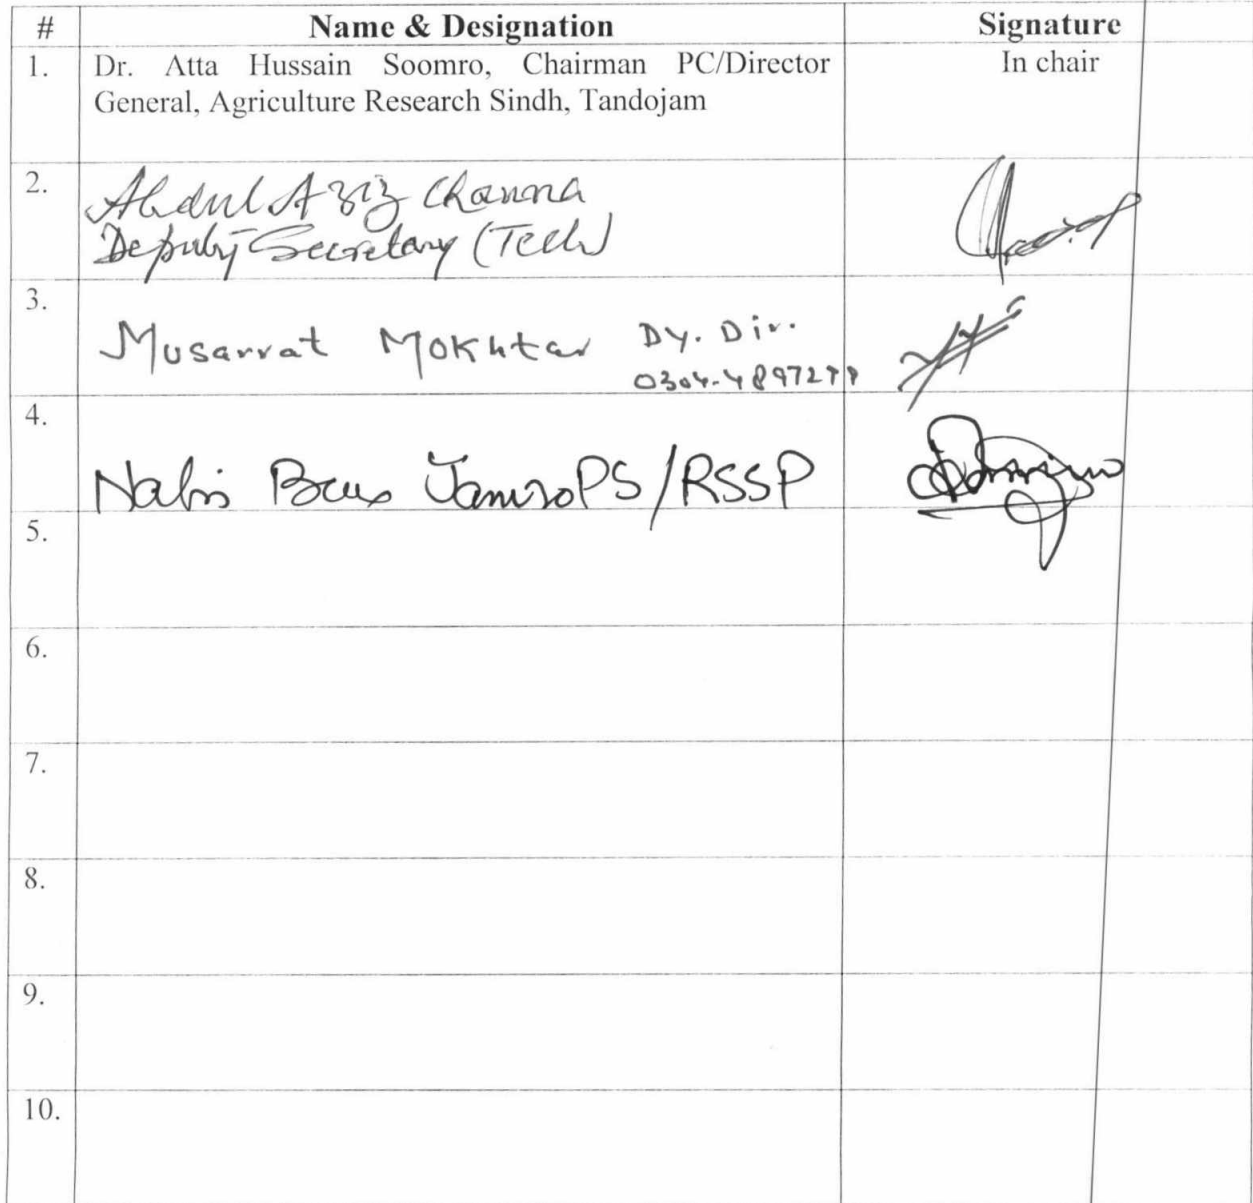 # Name & Designation Signature
1. Dr. Atta Hussain Soomro, Chairman PC/Director In chair
General, Agriculture Research Sindh, Tandojam
2. Abdul Aziz Channa
Deputy Secretary (Tech)
3. Musarrat Mokhtar Dy. Dir.
4. Nabi Bux Jamro PS/RSSP
5.
6.
7.
8.
9.
10.